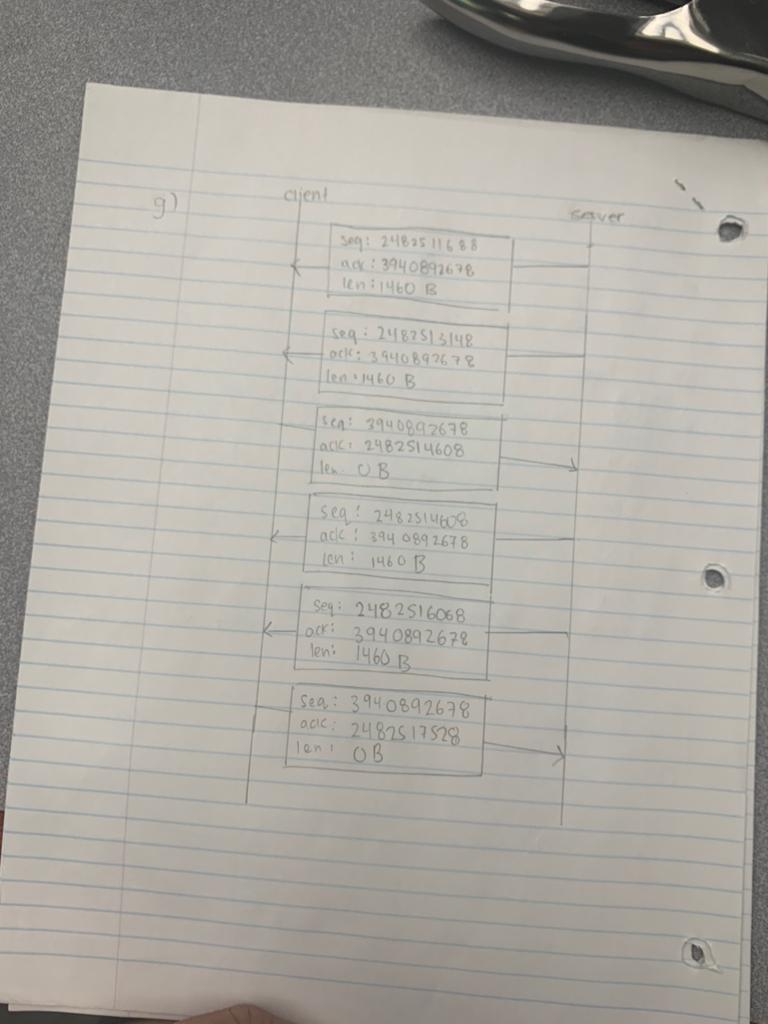 g)
client
server
seq: 2482511688
ack: 3940892678
len: 1460 B
seq: 2482513148
ack: 3940892678
len: 1460 B
seq: 3940892678
ack: 2482514608
len: 0 B
seq: 2482514608
ack: 3940892678
len: 1460 B
seq: 2482516068
ack: 3940892678
len: 1460 B
seq: 3940892678
ack: 2482517528
len: 0 B